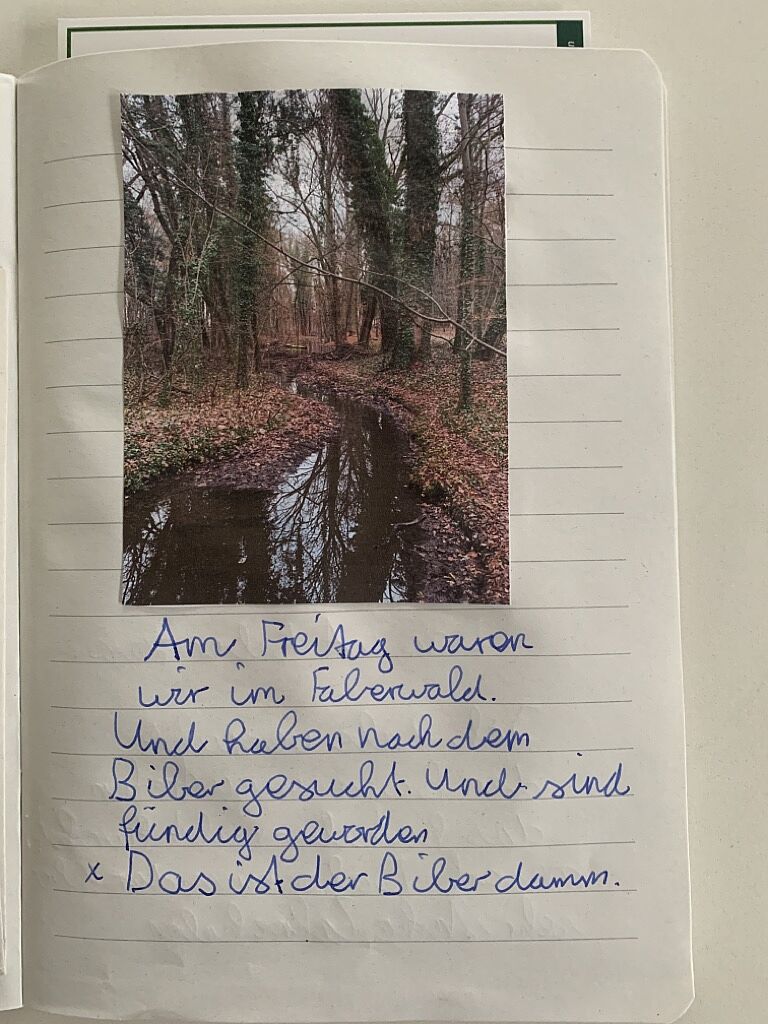 Am Freitag waren
wir im Faberwald.
Und haben nach dem
Biber gesucht. Und sind
fündig geworden
x Das ist der Biberdamm.